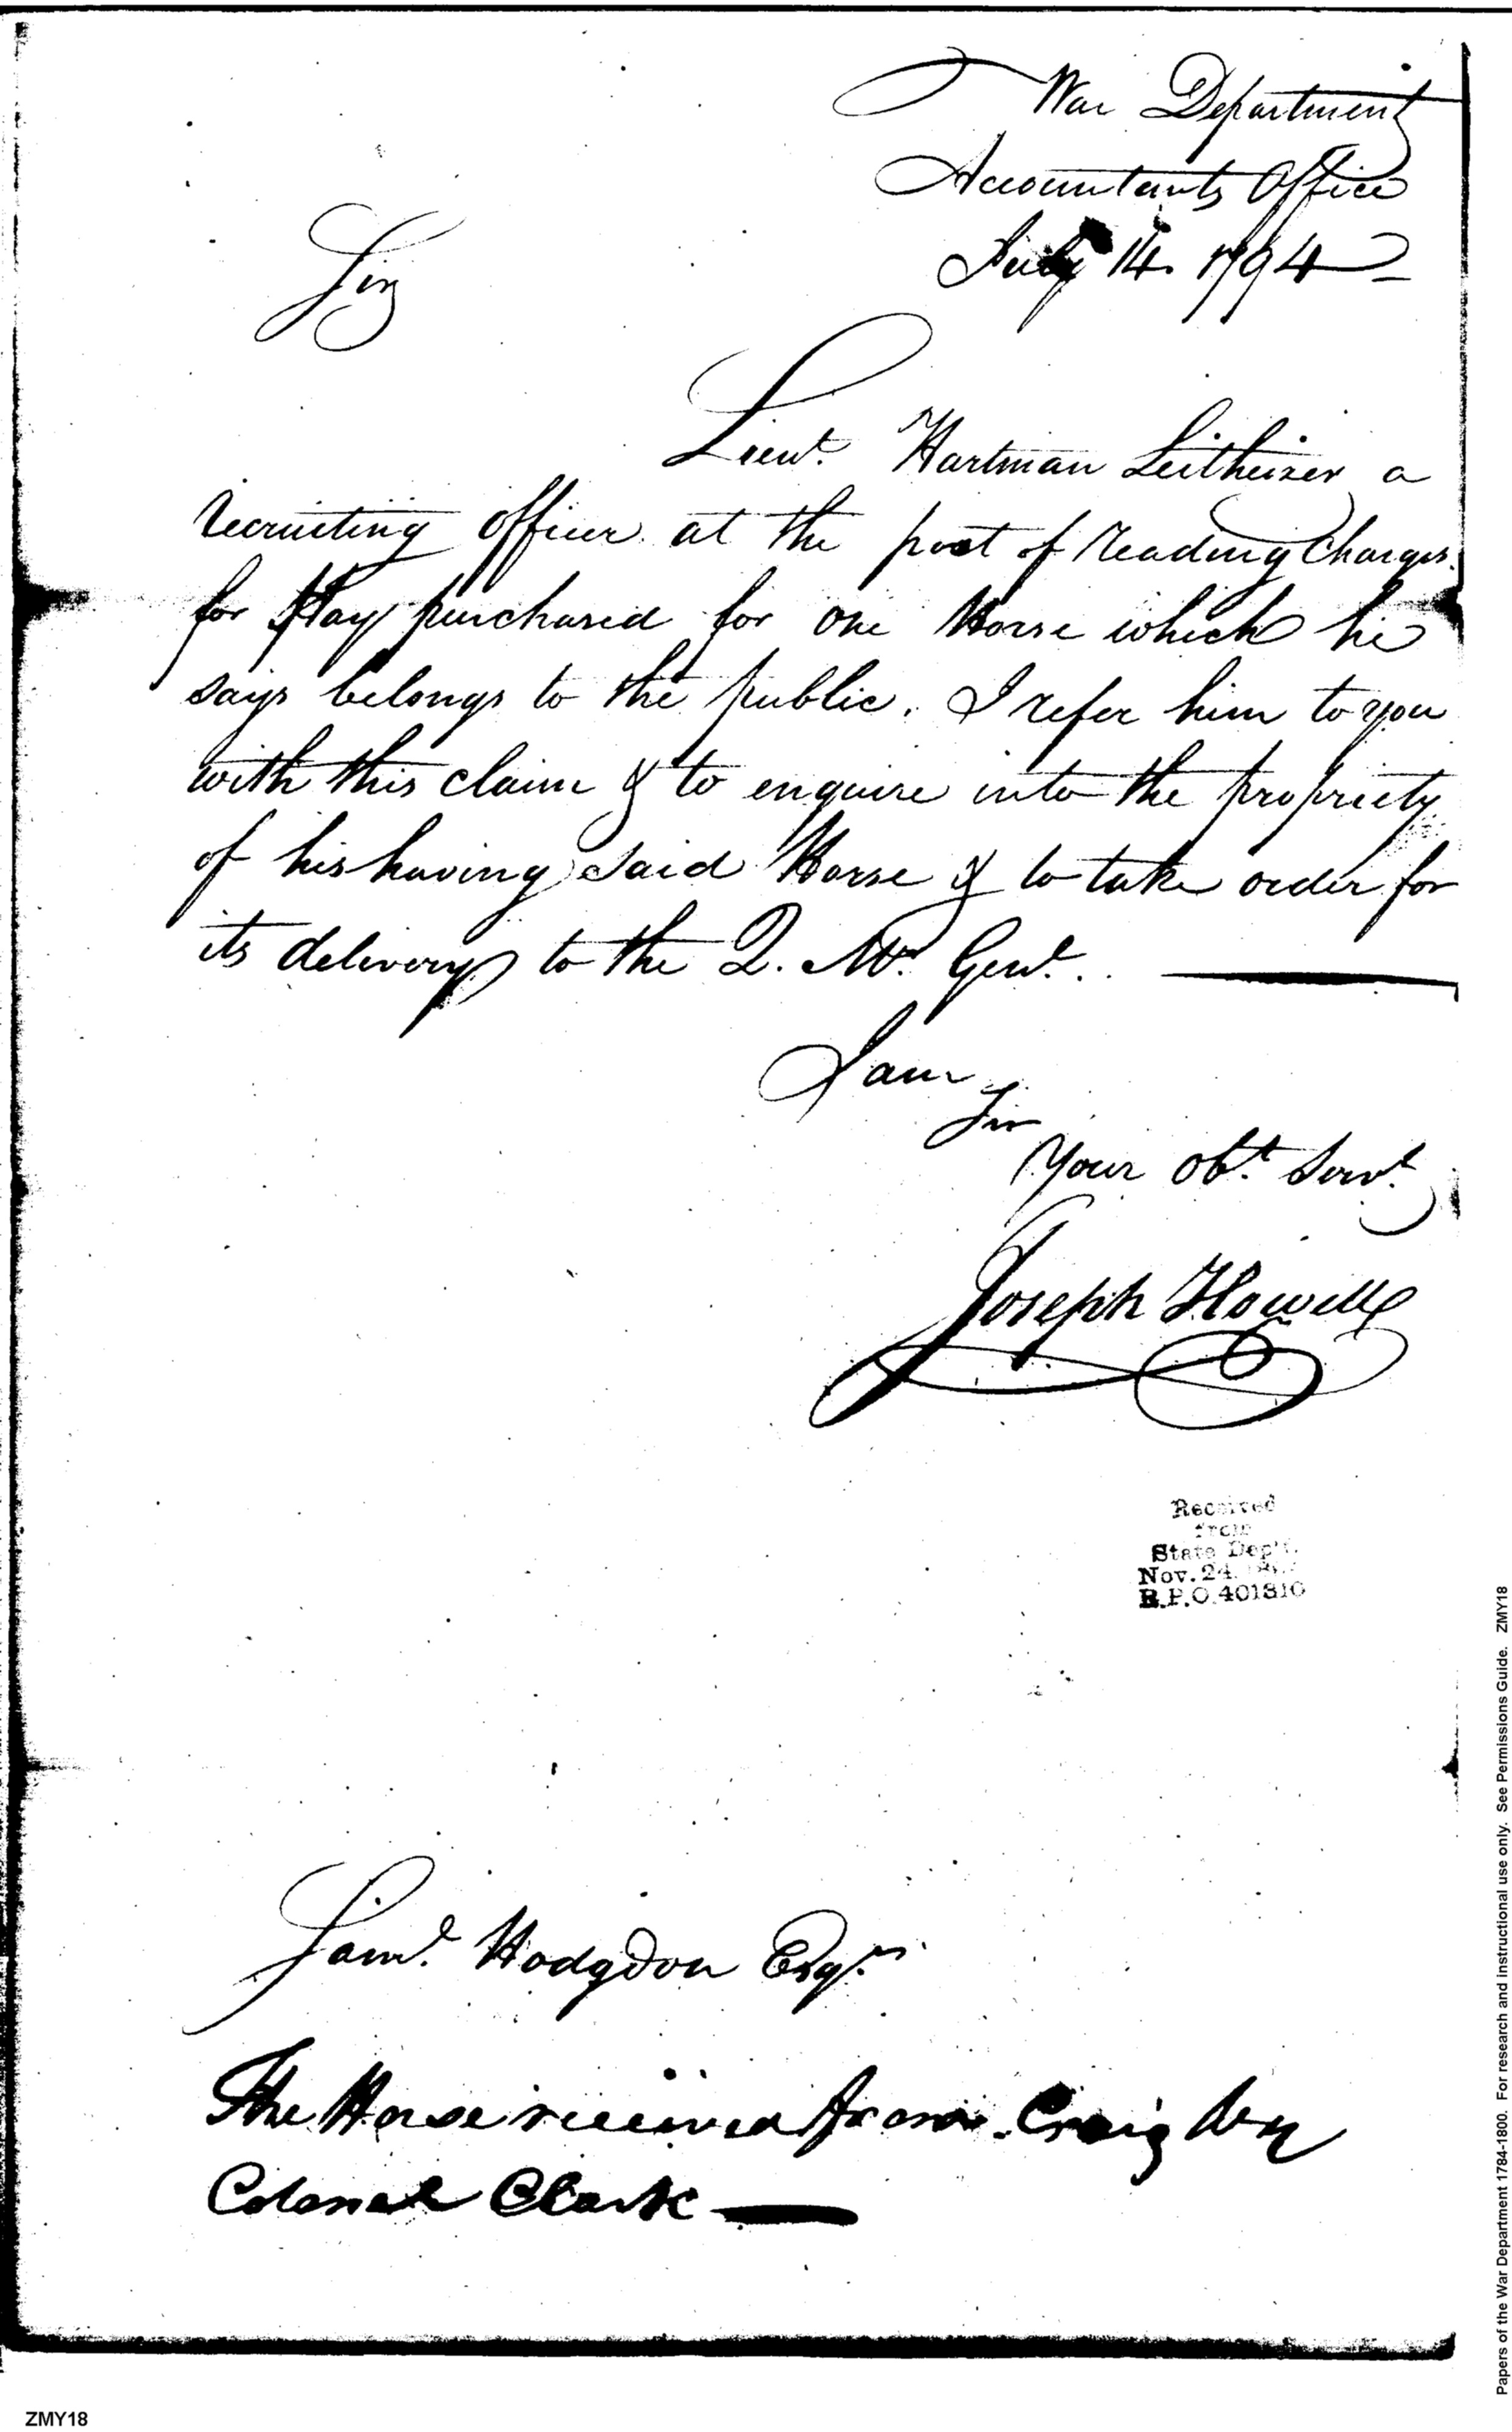 War Department
Accountants Office
July 14. 1794
Sir
Lieut. Hartman Leitheiser a
recruiting officer at the post of reading Charges
for Hay purchased for one Horse which he
says belongs to the public. I refer him to you
with this claim & to enquire into the propriety
of his having said Horse & to take order for
its delivery to the Q. Mr. Genl.
I am
Sir
Your Obt. Servt.
Joseph Howell
Received
from
State Dep't.
Nov. 24
R.P.O. 401310
Saml. Hodgdon Esqr.
The Horse received from Craig by
Colonel Clark
Papers of the War Department 1784-1800. For research and instructional use only. See Permissions Guide. ZMY18
ZMY18